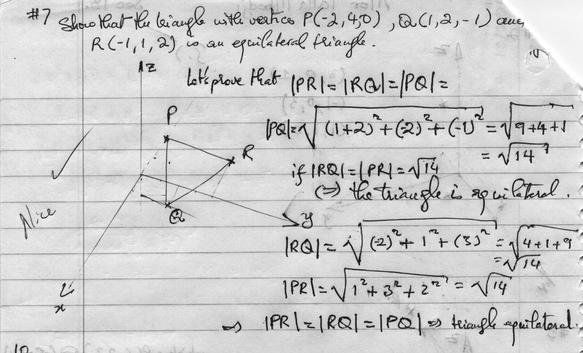 #7 Show that the triangle with vertices P(-2,4,0), Q(1,2,-1) and
R(-1,1,2) is an equilateral triangle.
Let's prove that |PR|=|RQ|=|PQ|=
|PQ|=√(1+2)²+(-2)²+(-1)² = √9+4+1
= √14
if |RQ|=|PR|=√14
(=) the triangle is equilateral.
|RQ|=√(-2)²+1²+(3)² = √4+1+9
=√14
|PR|=√1²+3²+2² = √14
=> |PR|=|RQ|=|PQ| => triangle equilateral.
Z
P
R
Q
y
x
Nice